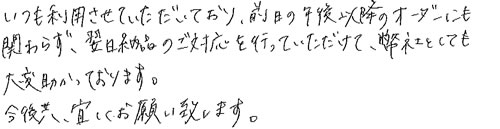 いつも利用させていただいており、前日の午後以降のオーダーにも
関わらず、翌日納品のご対応を行っていただけて、弊社としても
大変助かっております。
今後共、宜しくお願い致します。